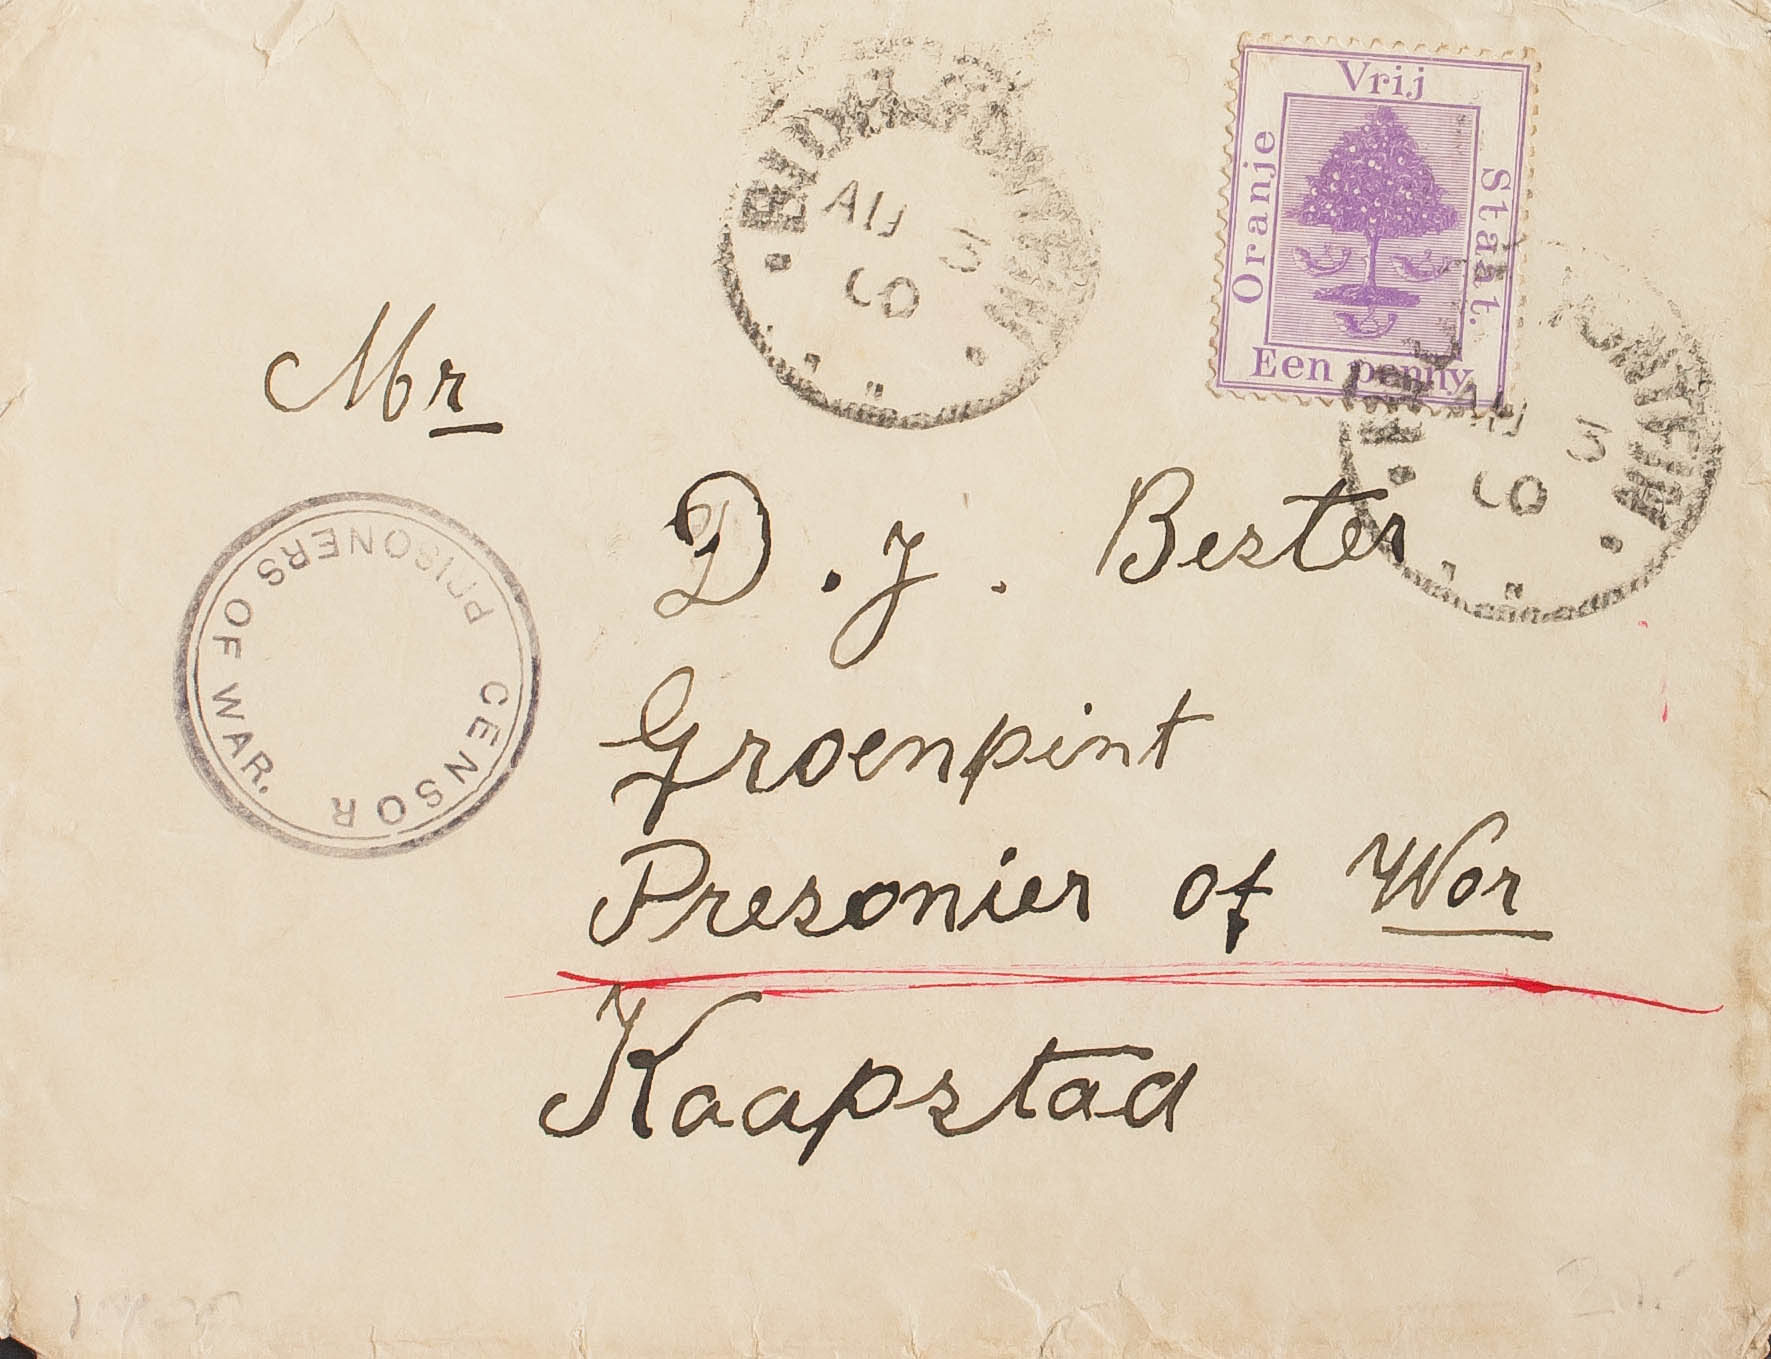 Vrij
Oranje
Staat.
Een penny
AU 3
00
AU 3
00
Mr
D. J. Bester
Groenpint
Presonier of Wor
Kaapstad
PRISONERS OF WAR.
CENSOR